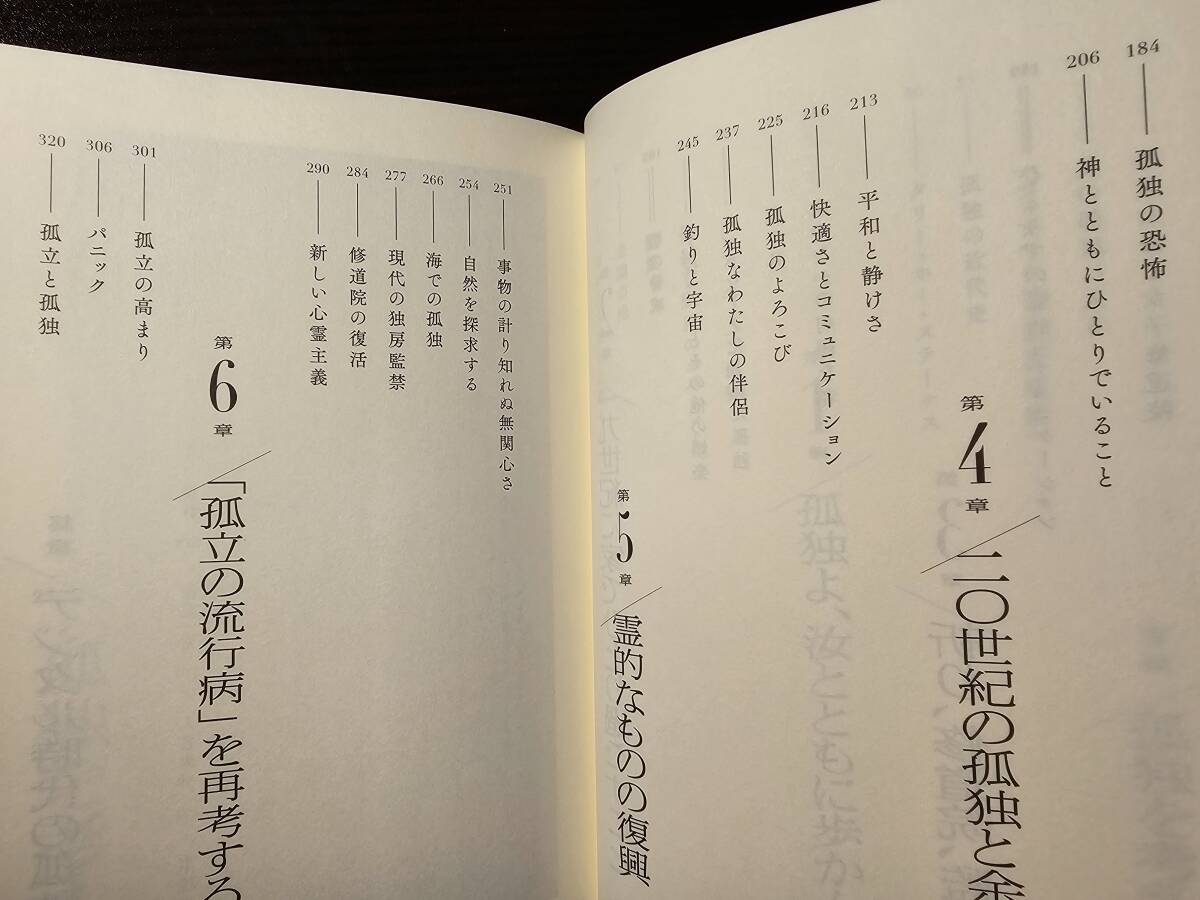 184 孤独の恐怖
206 神とともにひとりでいること
第4章 二〇世紀の孤独と余
213 平和と静けさ
216 快適さとコミュニケーション
225 孤独のよろこび
237 孤独なわたしの伴侶
245 釣りと宇宙
第5章 霊的なものの復興、
251 事物の計り知れぬ無関心さ
254 自然を探求する
266 海での孤独
277 現代の独房監禁
284 修道院の復活
290 新しい心霊主義
第6章 「孤立の流行病」を再考する
301 孤立の高まり
306 パニック
320 孤立と孤独